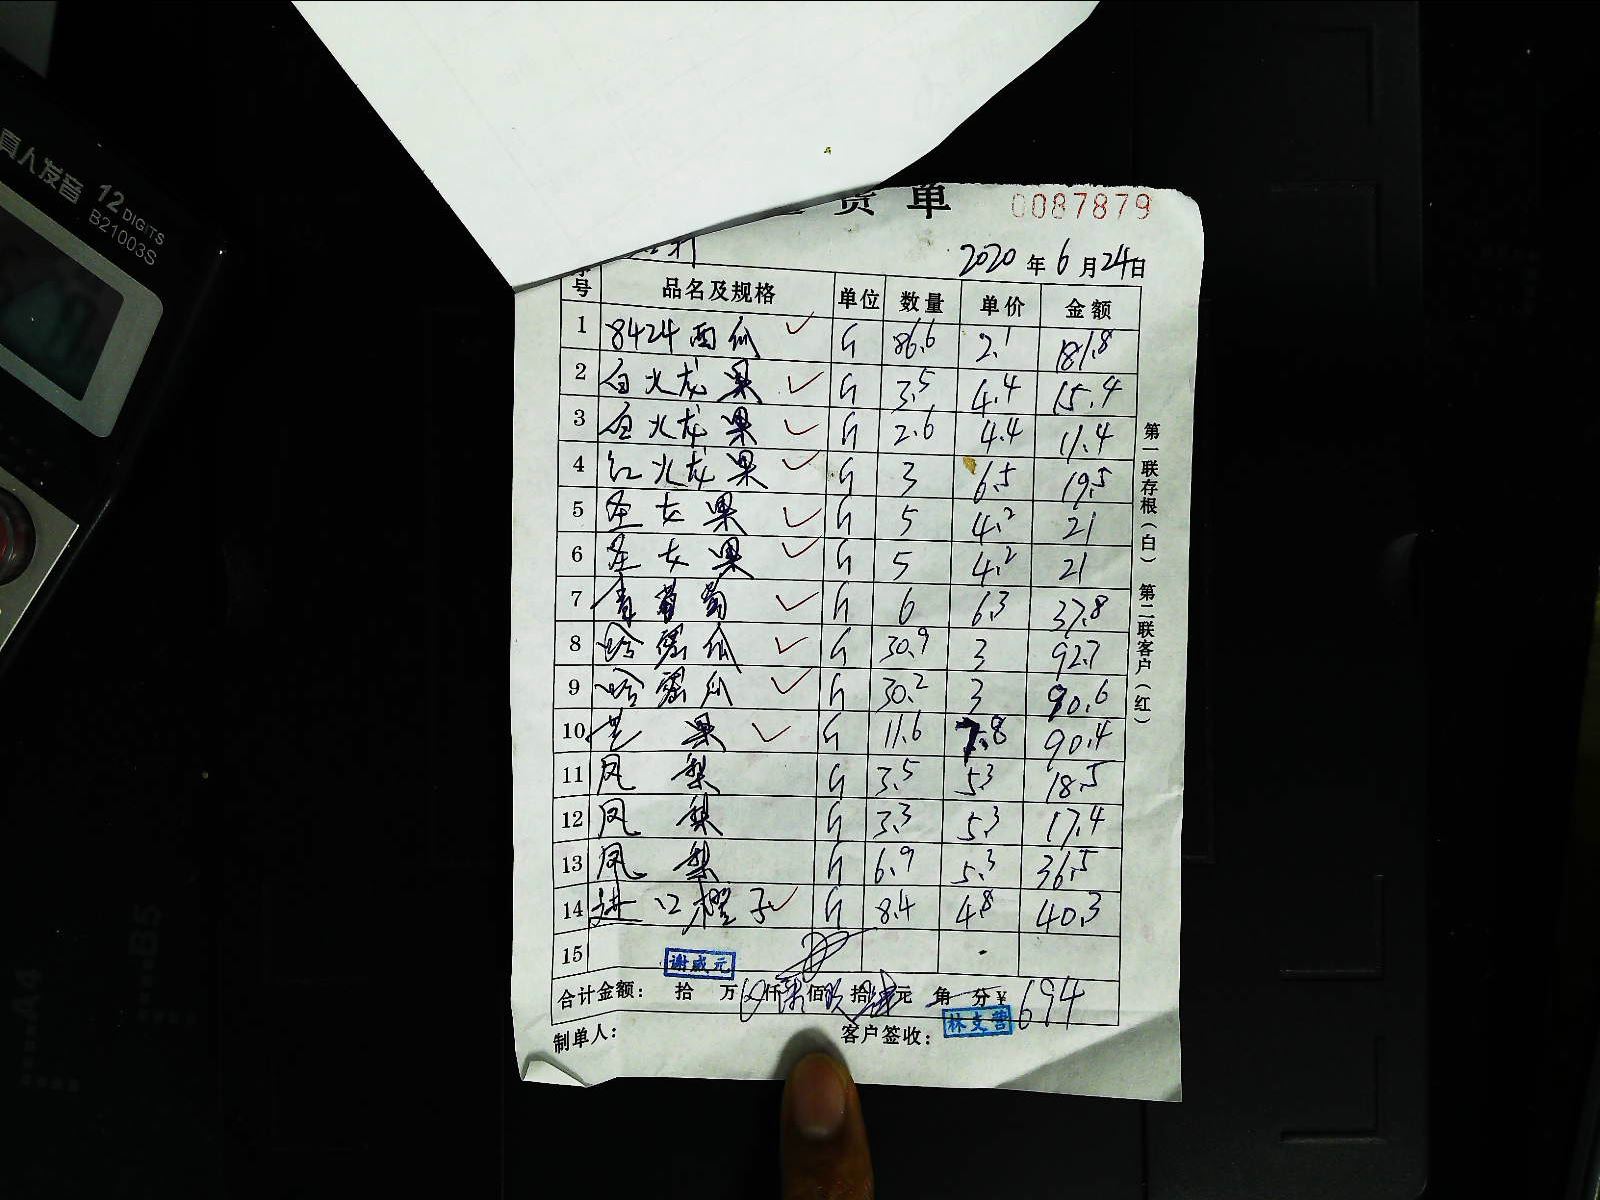 真人发音
12 DIGITS
B21003S
货单
0087879
2020年6月24日
号 品名及规格 单位 数量 单价 金额
1 8424西瓜 ✓ 斤 86.6 2.1 181.8
2 白火龙果 ✓ 斤 3.5 4.4 15.4
3 白火龙果 ✓ 斤 2.6 4.4 11.4
4 红火龙果 ✓ 斤 3 6.5 19.5
5 圣女果 ✓ 斤 5 4.2 21
6 圣女果 ✓ 斤 5 4.2 21
7 青葡萄 ✓ 斤 6 6.3 37.8
8 哈密瓜 ✓ 斤 30.9 3 92.7
9 哈密瓜 ✓ 斤 30.2 3 90.6
10 芒果 ✓ 斤 11.6 7.8 90.4
11 凤梨 斤 3.5 5.3 18.5
12 凤梨 斤 3.3 5.3 17.4
13 凤梨 斤 6.9 5.3 36.5
14 进口橙子 ✓ 斤 8.4 4.8 40.3
15
谢威元
合计金额: 拾 万 仟 陆佰玖拾肆元 角 分 ¥694
林支营
制单人: 客户签收:
第一联存根(白) 第二联客户(红)
A4
B5